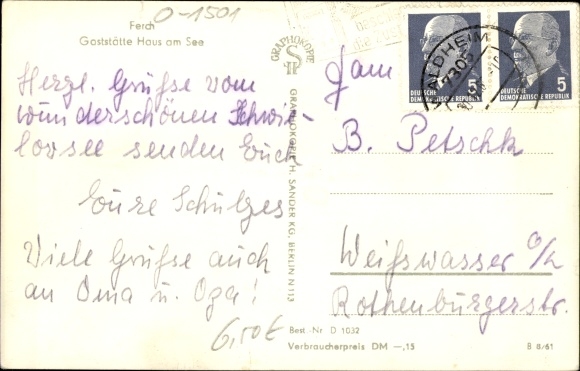 O-1501
Ferch
Gaststätte Haus am See
Herzl. Grüße vom
wunderschönen Schwie-
lowsee senden Euch
Eure Schulzes
Viele Grüße auch
an Oma u. Opa!
6,50€
GRAPHOKOPIE
GRAPHOKOPIE H. SANDER KG. BERLIN N 113
WALDHEIM
7305
5
DEUTSCHE
DEMOKRATISCHE REPUBLIK
5
DEUTSCHE
DEMOKRATISCHE REPUBLIK
Fam.
B. Petschk
Weißwasser O/L
Rothenburgerstr.
Best.-Nr. D 1032
Verbraucherpreis DM –,15
B 6/61